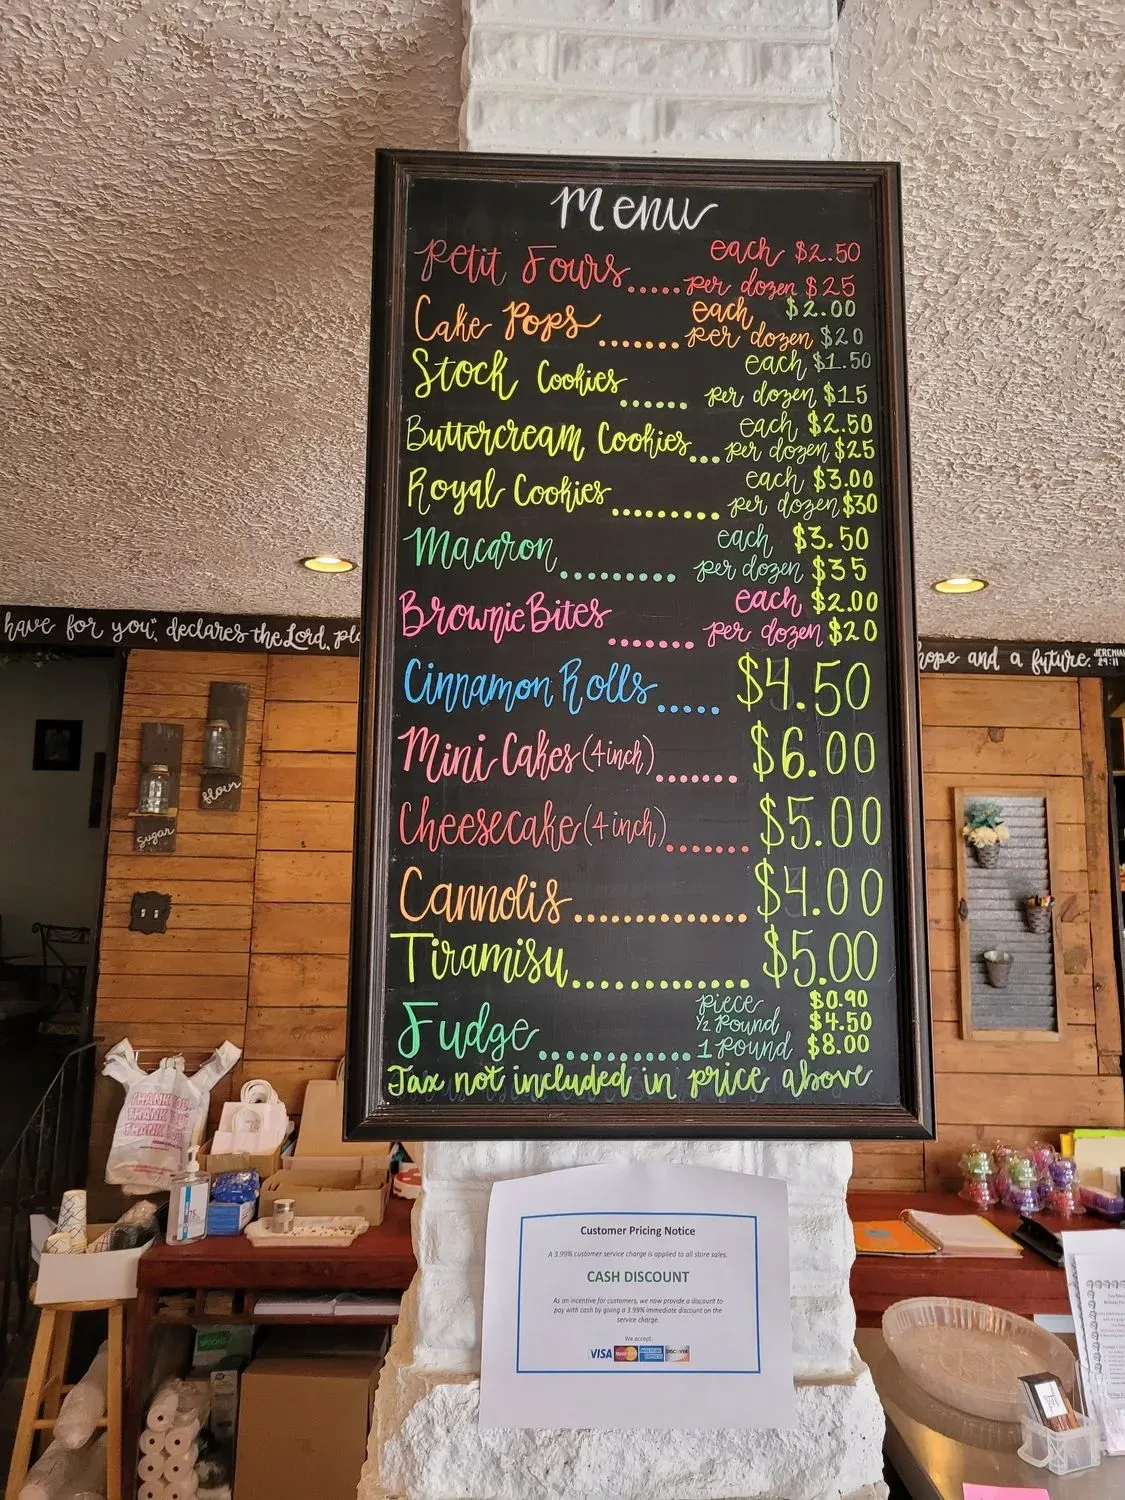 Menu
Petit Fours..... each $2.50
per dozen $25
Cake Pops....... each $2.00
per dozen $20
Stock Cookies...... each $1.50
per dozen $15
Buttercream Cookies... each $2.50
per dozen $25
Royal Cookies......... each $3.00
per dozen $30
Macaron......... each $3.50
per dozen $35
Brownie Bites....... each $2.00
per dozen $20
Cinnamon Rolls..... $4.50
Mini Cakes (4 inch)....... $6.00
Cheesecake (4 inch)....... $5.00
Cannolis............. $4.00
Tiramisu............. $5.00
Fudge............ piece $0.90
½ Pound $4.50
1 Pound $8.00
Tax not included in price above
have for you", declares the Lord, pla
hope and a future. JEREMIAH
29:11
flour
sugar
THANK YOU
THANK YOU
THANK YOU
Customer Pricing Notice
A 3.99% customer service charge is applied to all store sales.
CASH DISCOUNT
As an incentive for customers, we now provide a discount to
pay with cash by giving a 3.99% immediate discount on the
service charge.
We accept:
VISA MasterCard AMERICAN EXPRESS DISCOVER